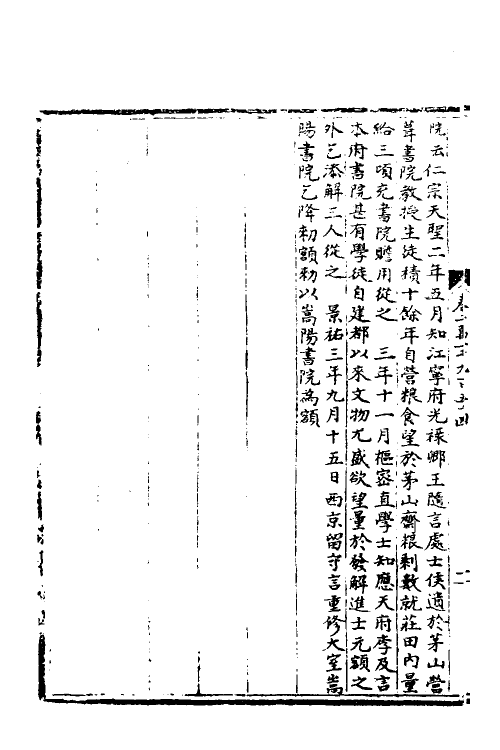 院云仁宗天聖二年五月知江寧府光祿卿王隨言處士侯遺於茅山營
葺書院教授生徒積十餘年自營粮食望於茅山齋粮剩數就莊田內量
給三頃充書院贍用從之　三年十一月樞密直學士知應天府李及言
本府書院甚有學徒自建都以來文物尤盛欲望量於發解進士元額之
外乞添解三人從之　景祐三年九月十五日西京留守言重修太室嵩
陽書院乞降勑額勑以嵩陽書院為額